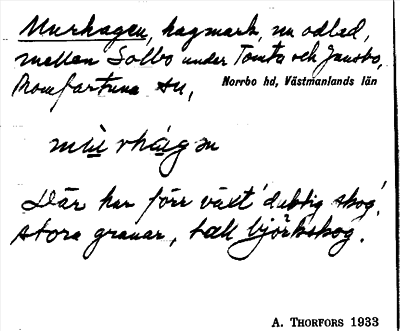 Murhagen, hagmark, nu odlad,
mellan Solbo under Tomta och Jansbo,
Romfartuna sn, Norrbo hd, Västmanlands län
Där har förr växt 'duktig skog',
stora granar, tall björkskog.
A. THORFORS 1933